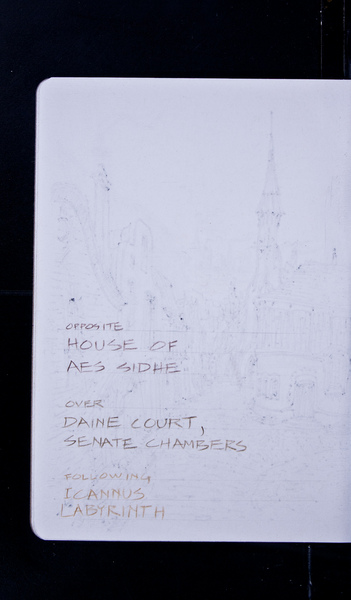 OPPOSITE
HOUSE OF
AES SIDHE
OVER
DAINE COURT,
SENATE CHAMBERS
FOLLOWING
ICANNUS
LABYRINTH